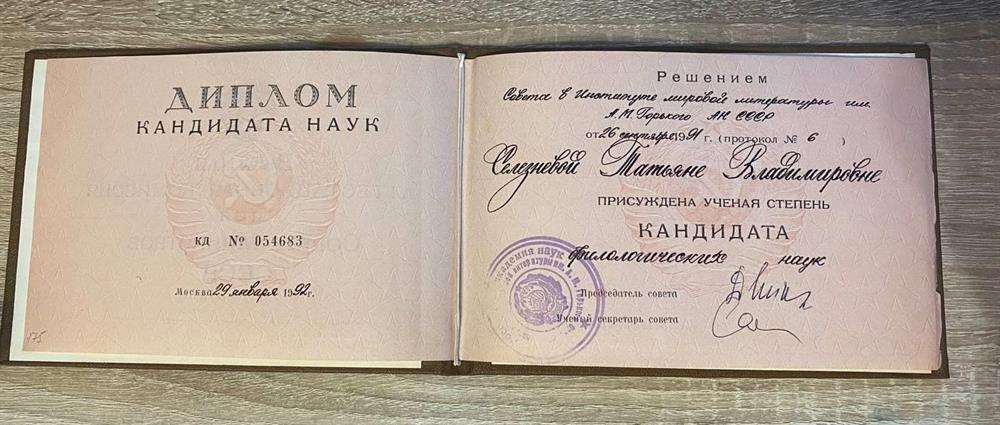 ДИПЛОМ
КАНДИДАТА НАУК
КД № 054683
Москва 29 января 1992г.
175
Решением
Совета в Институте мировой литературы им.
А.М. Горького АН СССР
от 26 сентября 1991 г. (протокол № 6 )
Селезневой Татьяне Владимировне
ПРИСУЖДЕНА УЧЕНАЯ СТЕПЕНЬ
КАНДИДАТА
филологических наук
Председатель совета
Ученый секретарь совета
академия наук